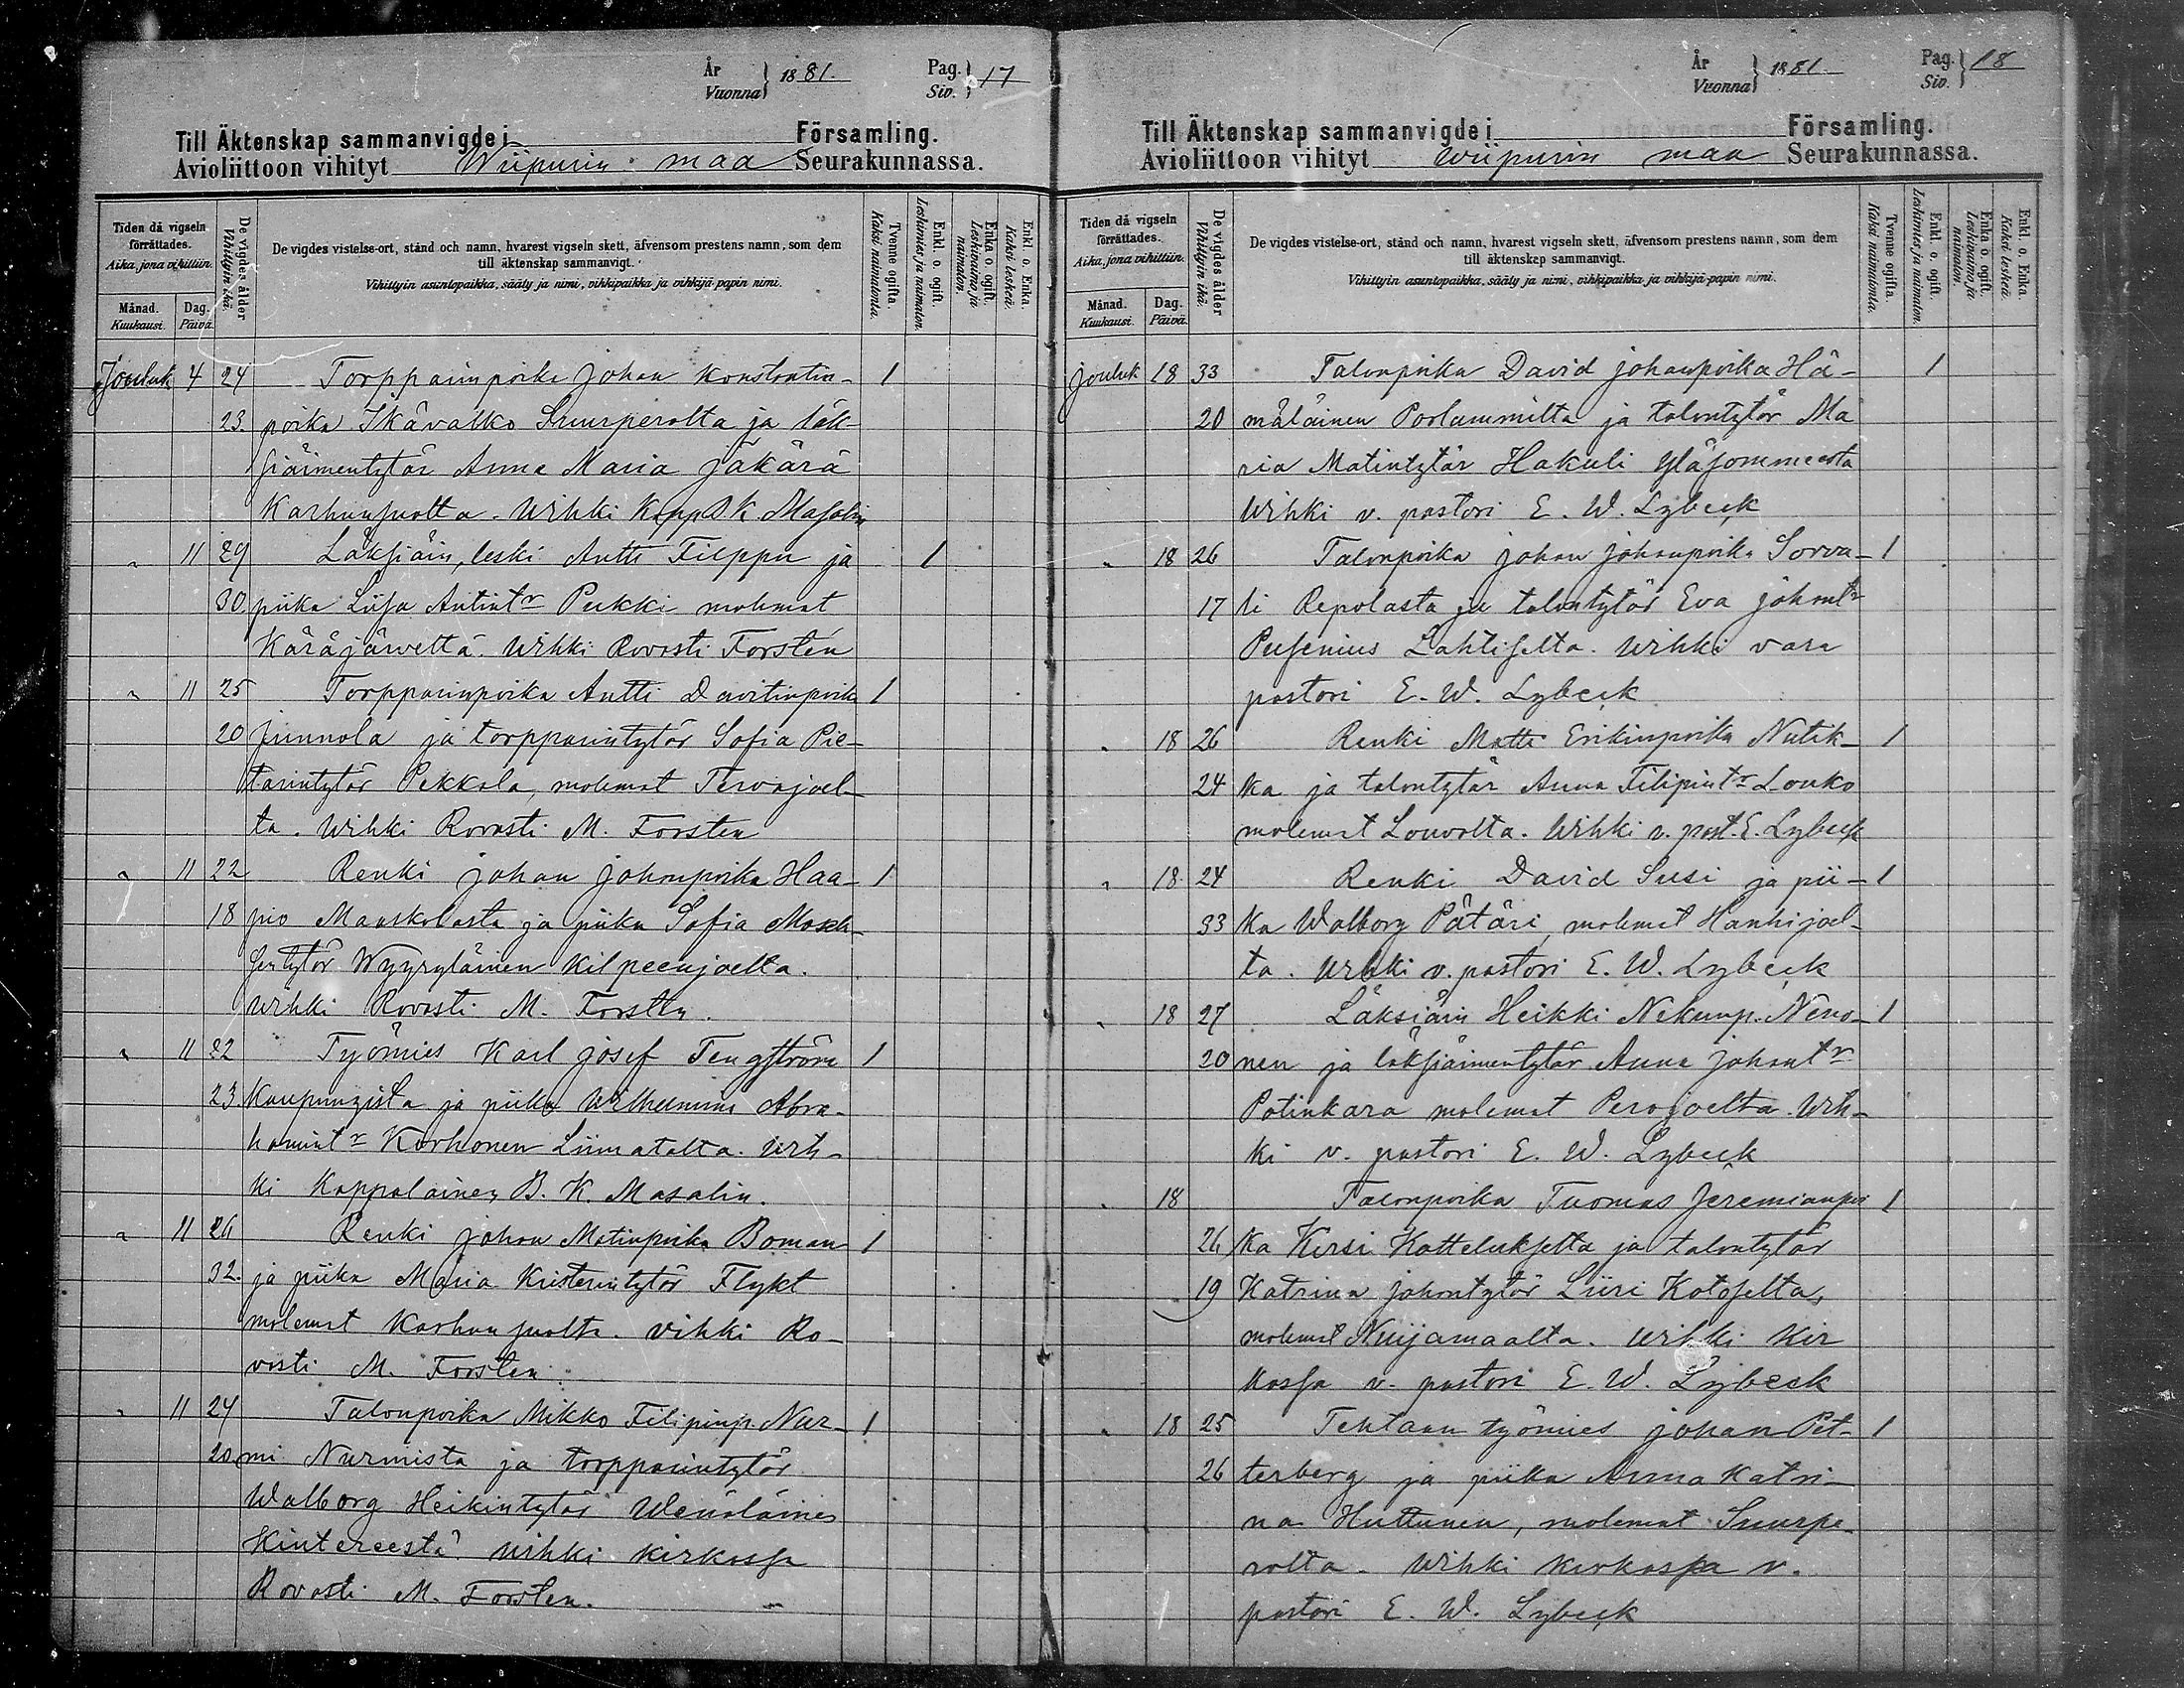 År
Vuonna } 1881.
Pag.
Siv. } 17
Till Äktenskap sammanvigde i Församling.
Avioliittoon vihityt Wiipurin maa Seurakunnassa.
Tiden då vigseln förrättades.
Aika, jona vihittiin.
Månad.
Kuukausi.
Dag.
Päivä.
De vigdes ålder
Vihittyin ikä.
De vigdes vistelse-ort, stånd och namn, hvarest vigseln skett, äfvensom prestens namn, som dem
till äktenskap sammanvigt.
Vihittyin asuntopaikka, sääty ja nimi, vihkipaikka ja vihkijä-papin nimi.
Tvenne ogifta.
Kaksi naimatonta.
Enkl. o. ogift.
Leskimies ja naimaton.
Enka o. ogift.
Leskivaimo ja naimaton.
Enkl. o. Enka.
Kaksi leskeä.
Jouluk 4 24 Torpparinpoika Johan Konstantin- 1
23. poika Ikävalko Suurperolta ja läk-
siäimentytär Anna Maria Jäkärä
Karhunsuolta. Wihki Kapp B K Masalin
" 11 29 Läksiäin, leski Antti Filppu ja 1
30 piika Liisa Antint:r Pukki molemat
Käräjärveltä. Wihki Rovasti Forstén
" 11 25 Torpparinpoika Antti Davitinpoika 1
20 Junnola ja torpparintytär Sofia Pie-
tarintytär Pekkola, molemat Tervajoel-
ta. Wihki Rovasti M. Forsten
" 11 22 Renki Johan Johanpoika Haa- 1
18 pio Manskolasta ja piika Sofia
sentytär Wyyryläinen Kilpeenjoelta.
Wihki Rovasti M. Forsten.
" 11 22 Työmies Karl Josef Tengström 1
23. Kaupungista ja piika Wilhelmina Abra-
hamint:r Korhonen Liimatalta. Wih-
ki Kappalainen B. K. Masalin.
" 11 26 Renki Johan Matinpoika Boman 1
32. ja piika Maria Kristerintytär Flykt
molemat Karhunsuolta. Vihki Ro-
vasti M. Forsten.
" 11 24 Talonpoika Mikko Filipinp. Nur- 1
20 mi Nurmista ja torpparintytär
Walborg Heikintytär Wenäläinen
Kintereestä. Wihki kirkossa
Rovasti M. Forsten.
År
Vuonna } 1881
Pag.
Siv. } 18
Till Äktenskap sammanvigde i Församling.
Avioliittoon vihityt Wiipurin maa Seurakunnassa.
Tiden då vigseln förrättades.
Aika, jona vihittiin.
Månad.
Kuukausi.
Dag.
Päivä.
De vigdes ålder
Vihittyin ikä.
De vigdes vistelse-ort, stånd och namn, hvarest vigseln skett, äfvensom prestens namn, som dem
till äktenskap sammanvigt.
Vihittyin asuntopaikka, sääty ja nimi, vihkipaikka ja vihkijä-papin nimi.
Tvenne ogifta.
Kaksi naimatonta.
Enkl. o. ogift.
Leskimies ja naimaton.
Enka o. ogift.
Leskivaimo ja naimaton.
Enkl. o. Enka.
Kaksi leskeä.
Jouluk 18 33 Talonpoika David Johanpoika Hä- 1
20 mäläinen Porlammilta ja talontytär Ma
ria Matintytär Hakuli Yläsommeesta
Wihki v. pastori E. W. Lybeck
" 18 26 Talonpoika Johan Johanpoika Sorva- 1
17 li Repolasta ja talontytär Eva Johant:r
Pusenius Lahtiselta. Wihki vara
pastori E. W. Lybeck
" 18 26 Renki Matti Erikinpoika Nutik- 1
24 ka ja talontytär Anna Filipint:r Louko
molemat Louvolta. Wihki v. past. E. Lybeck
" 18. 24 Renki David Susi ja pii- 1
33 ka Walborg Pätäri, molemat Hanhijoel-
ta. Wihki v. pastori E. W. Lybeck
" 18 27 Läksiäin Heikki Nekunp. Nevo- 1
20 nen ja läksiäimentytär Anna Johant:r
Potinkara molemat Perojoelta. Wih-
ki v. pastori E. W. Lybeck
" 18 Talonpoika Tuomas Jeremianpoi 1
26 ka Kirsi Kattelukselta ja talontytär
19 Katrina Johantytär Liiri Kotoselta,
molemat Nuijamaalta. Wihki Kir
kossa v. pastori E. W. Lybeck
" 18 25 Tehtaan työmies Johan Pet- 1
26 terberg ja piika Anna Katri-
na Huttunen, molemat Suurpe-
rolta. Wihki kirkossa v.
pastori E. W. Lybeck